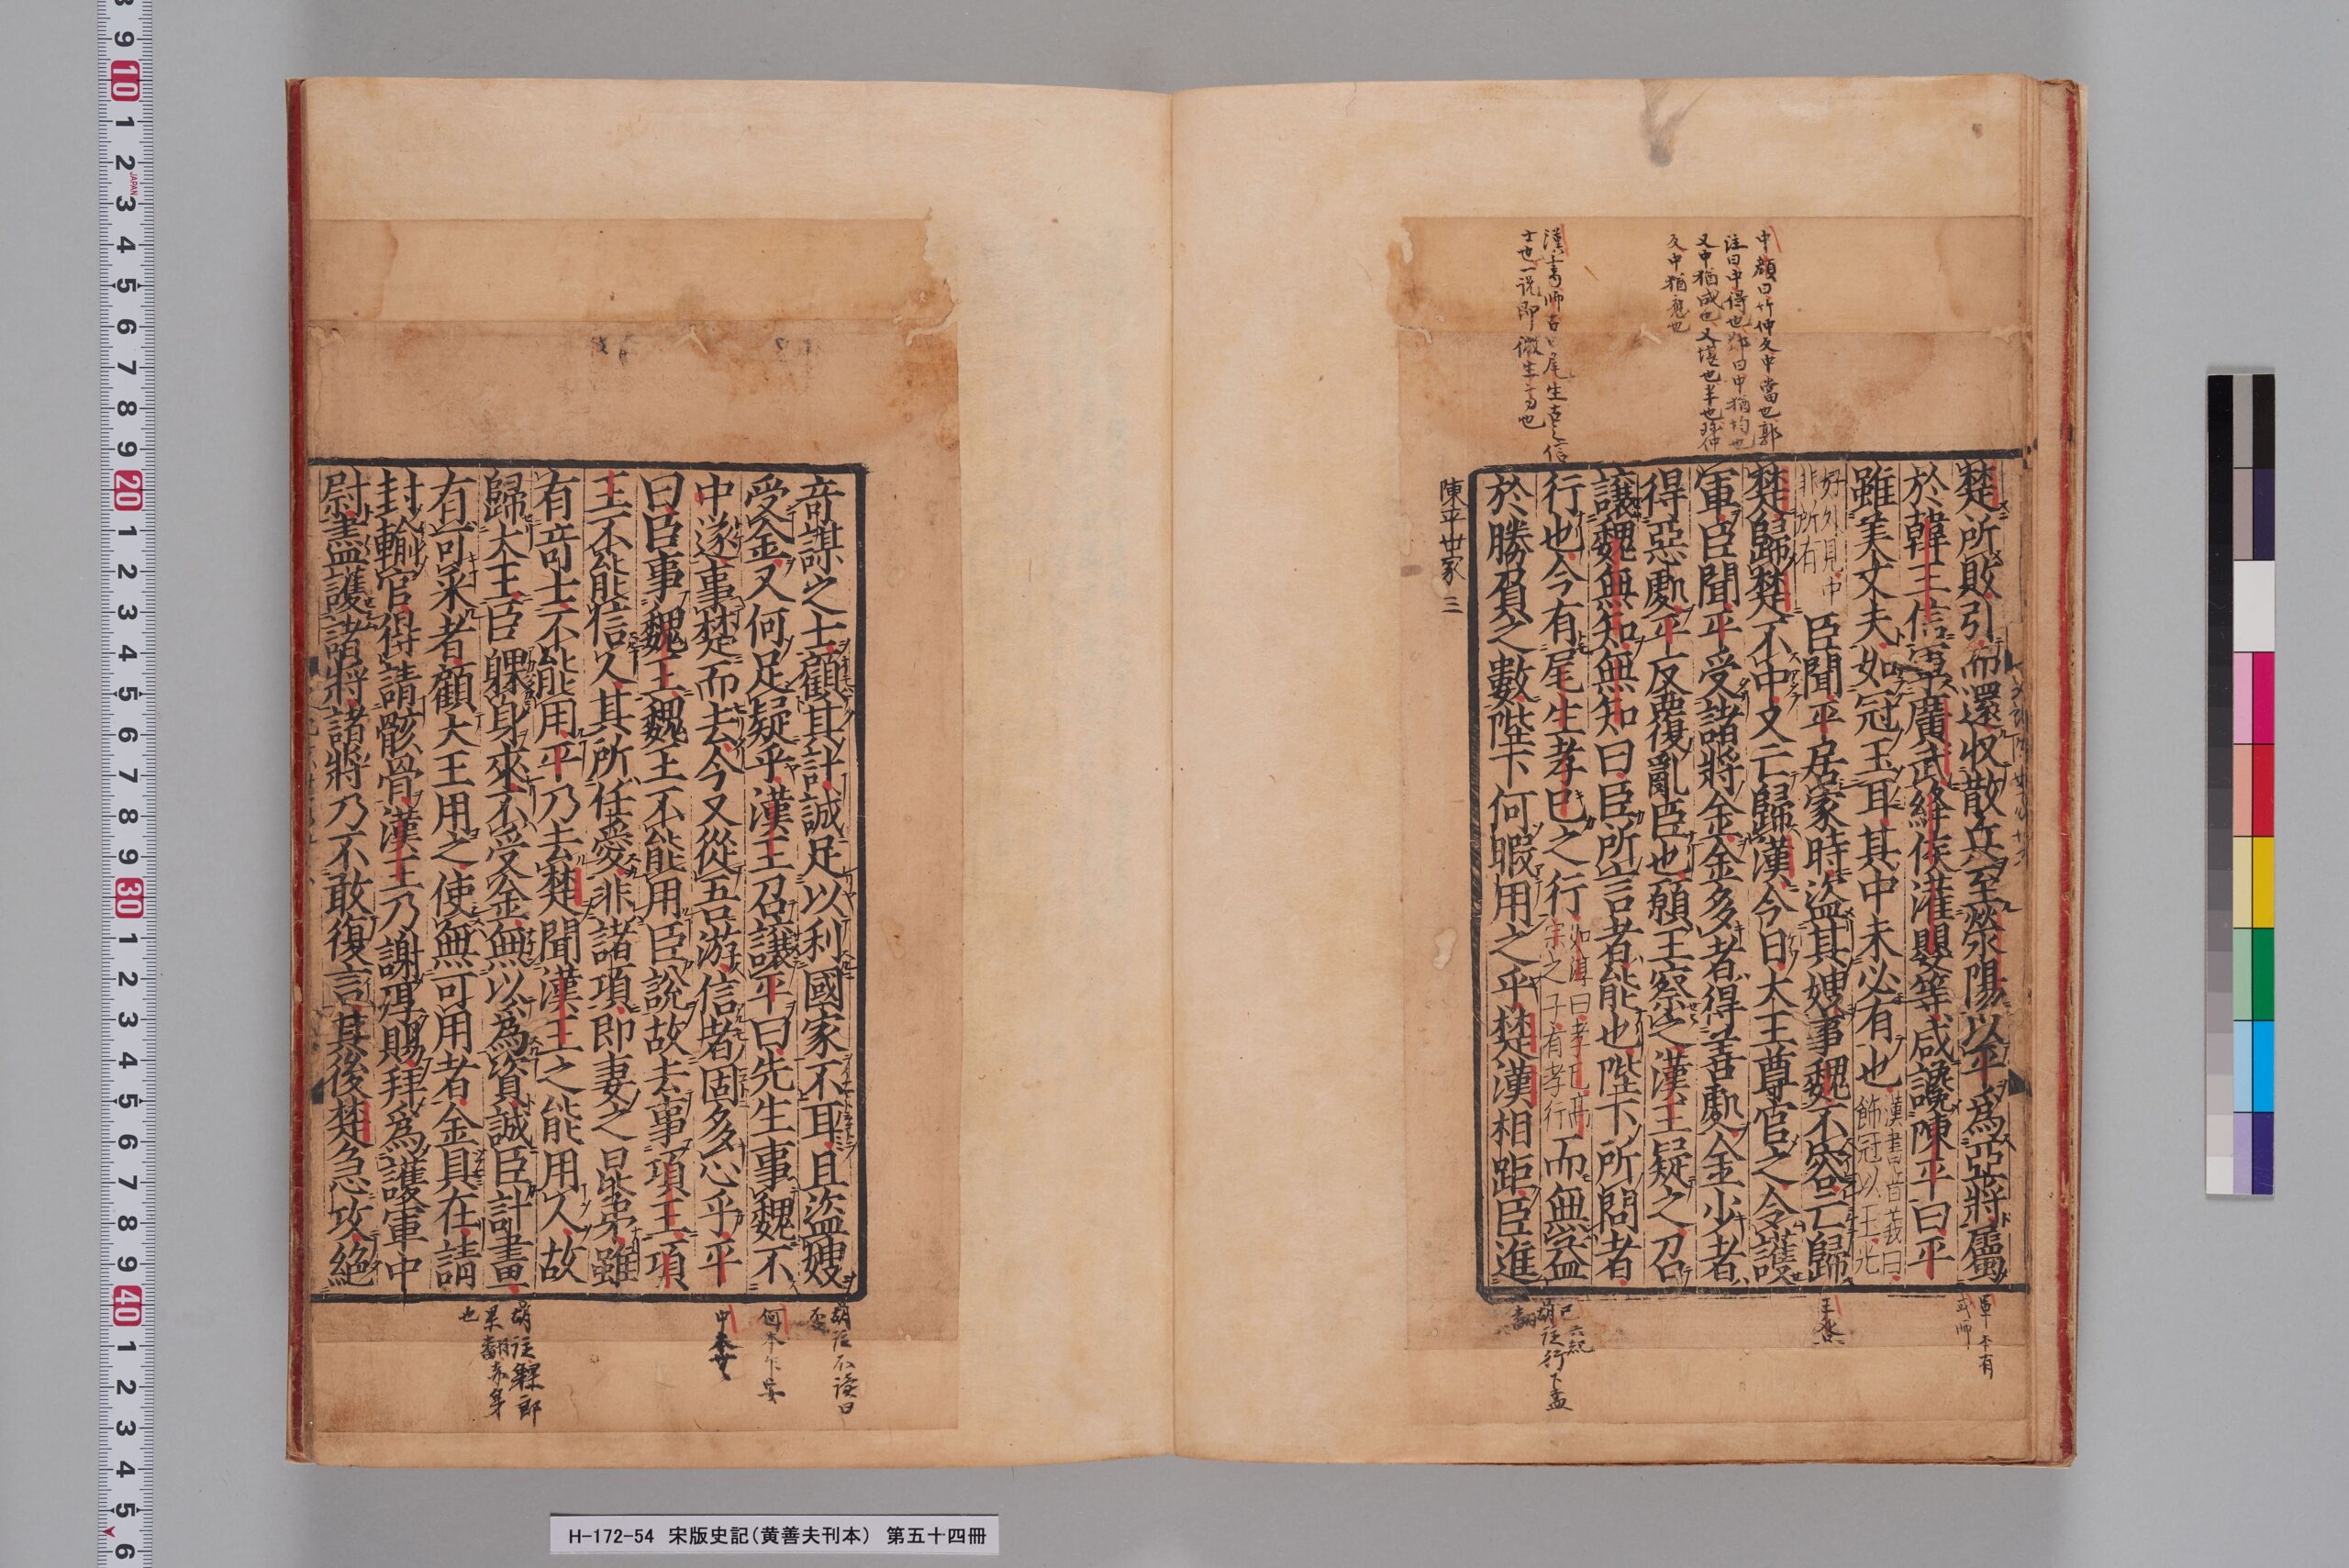 楚所敗引而還收散兵至滎陽以平爲亞將屬
於韓王信軍廣武絳侯灌嬰等咸讒陳平曰平
雖美丈夫如冠玉耳其中未必有也漢書音義曰
飾冠以玉光
好外見中
非所有
臣聞平居家時盜其嫂事魏不容亡歸
楚歸楚不中又亡歸漢今日大王尊官之令護
軍臣聞平受諸將金金多者得善處金少者
得惡處平反覆亂臣也願王察之漢王疑之召
讓魏無知無知曰臣所言者能也陛下所問者
行也今有尾生孝已之行如淳曰孝已高
宗之子有孝行
而無益
於勝負之數陛下何暇用之乎楚漢相距臣進
陳平世家 三
奇謀之士顧其計誠足以利國家不耳且盜嫂
受金又何足疑乎漢王召讓平曰先生事魏不
中遂事楚而去今又從吾游信者固多心乎平
曰臣事魏王魏王不能用臣說故去事項王項
王不能信人其所任愛非諸項即妻之昆弟雖
有奇士不能用平乃去楚聞漢王之能用人故
歸大王臣躶身來不受金無以爲資誠臣計畫
有可采者顧大王用之使無可用者金具在請
封輸官得請骸骨漢王乃謝厚賜拜爲護軍中
尉盡護諸將諸將乃不敢復言其後楚急攻絕
中顏曰竹仲反中當也郭
注曰中得也鄭曰中猶均也
又中猶成也又堪也半也珎仲
反中猶應也
漢書師古曰尾生古之信
士也一說即微生高也
H-172-54 宋版史記（黄善夫刊本） 第五十四冊
JAPAN